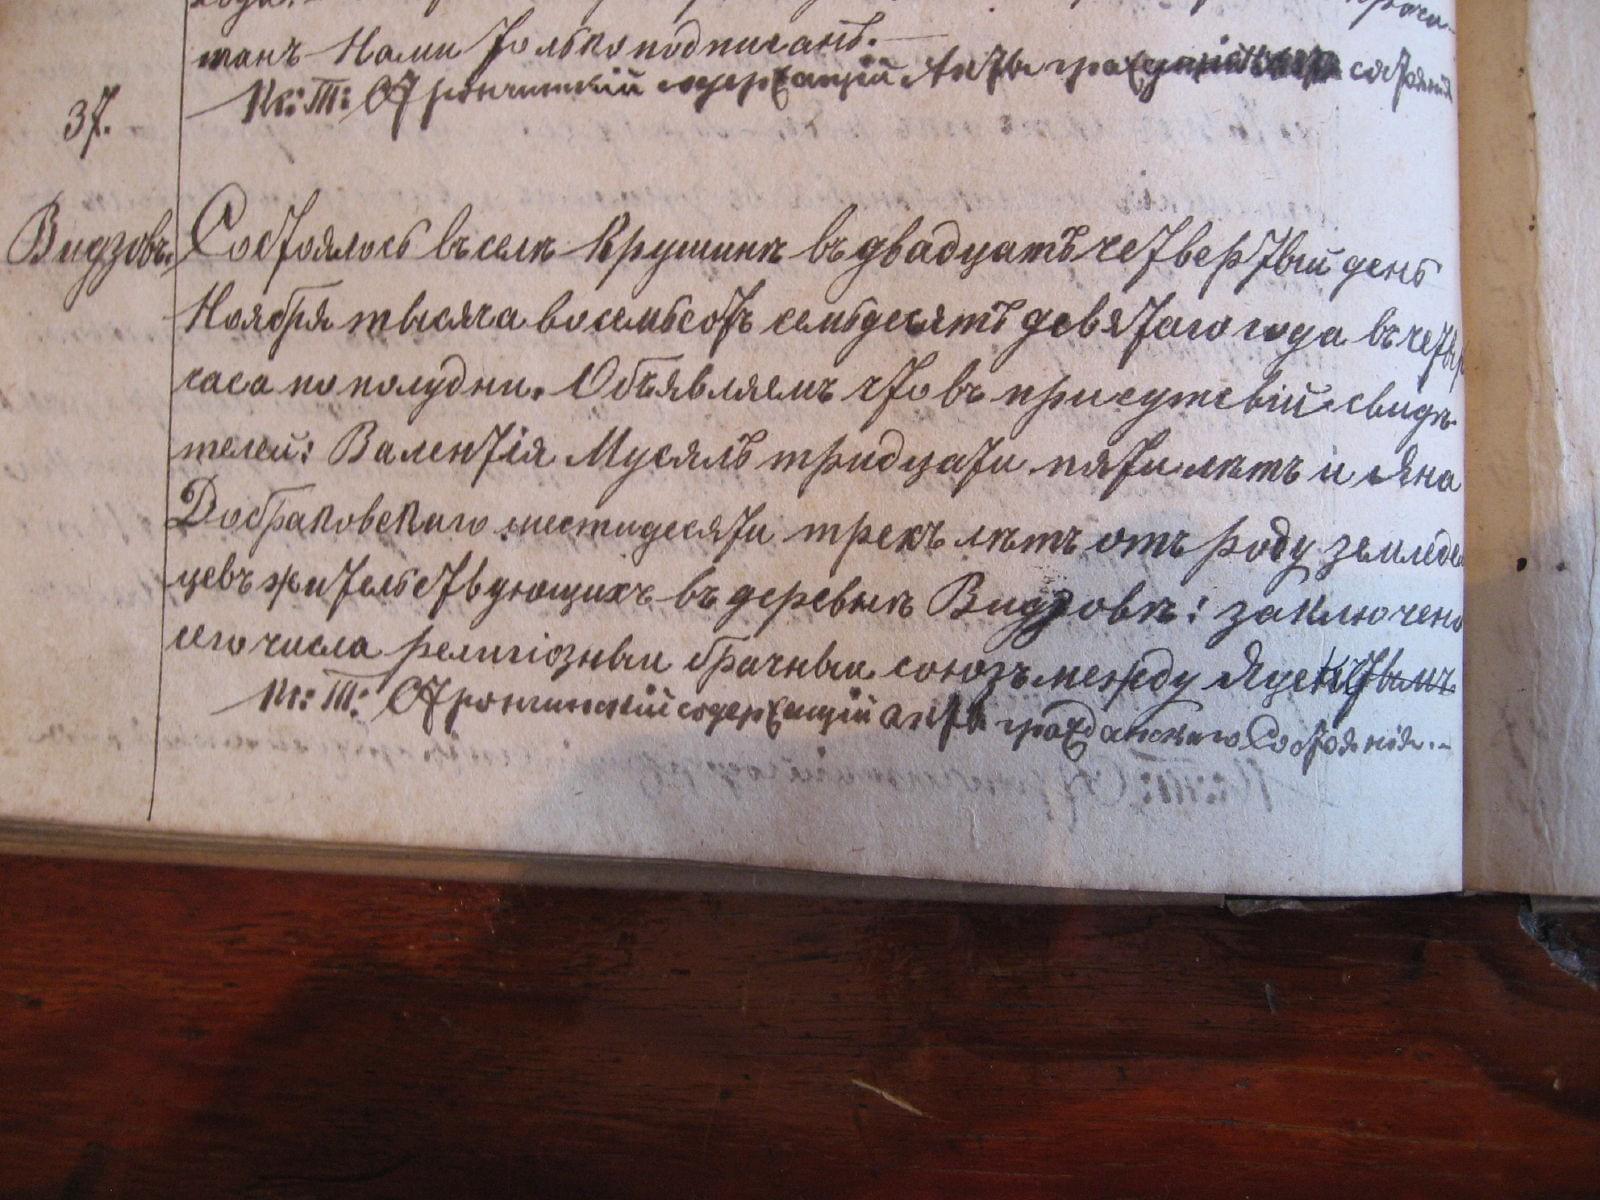 танъ Нами только подписанъ.—
Кс: Т: Отрончинскій содержащій Акты гражданскаго состоянія
37.
Видзовъ. Состоялось въ селѣ Крушинѣ въ двадцать четвертый день
Ноября тысяча восемьсотъ семьдесятъ девятаго года въ четыр
часа пополудни. Объявляемъ что въ присутсвій свидѣ-
телей: Валентія Мусялъ тридцати пяти лѣтъ и Яна
Добраковскаго шестидесяти трехъ лѣтъ отъ роду земледѣль
цевъ жительствующихъ въ деревнѣ Видзовѣ: заключено
сего числа религіозный брачный союзъ между Яцентымъ
Кс: Т: Отрончинскій содержащій акты гражданскаго Состоянія.–